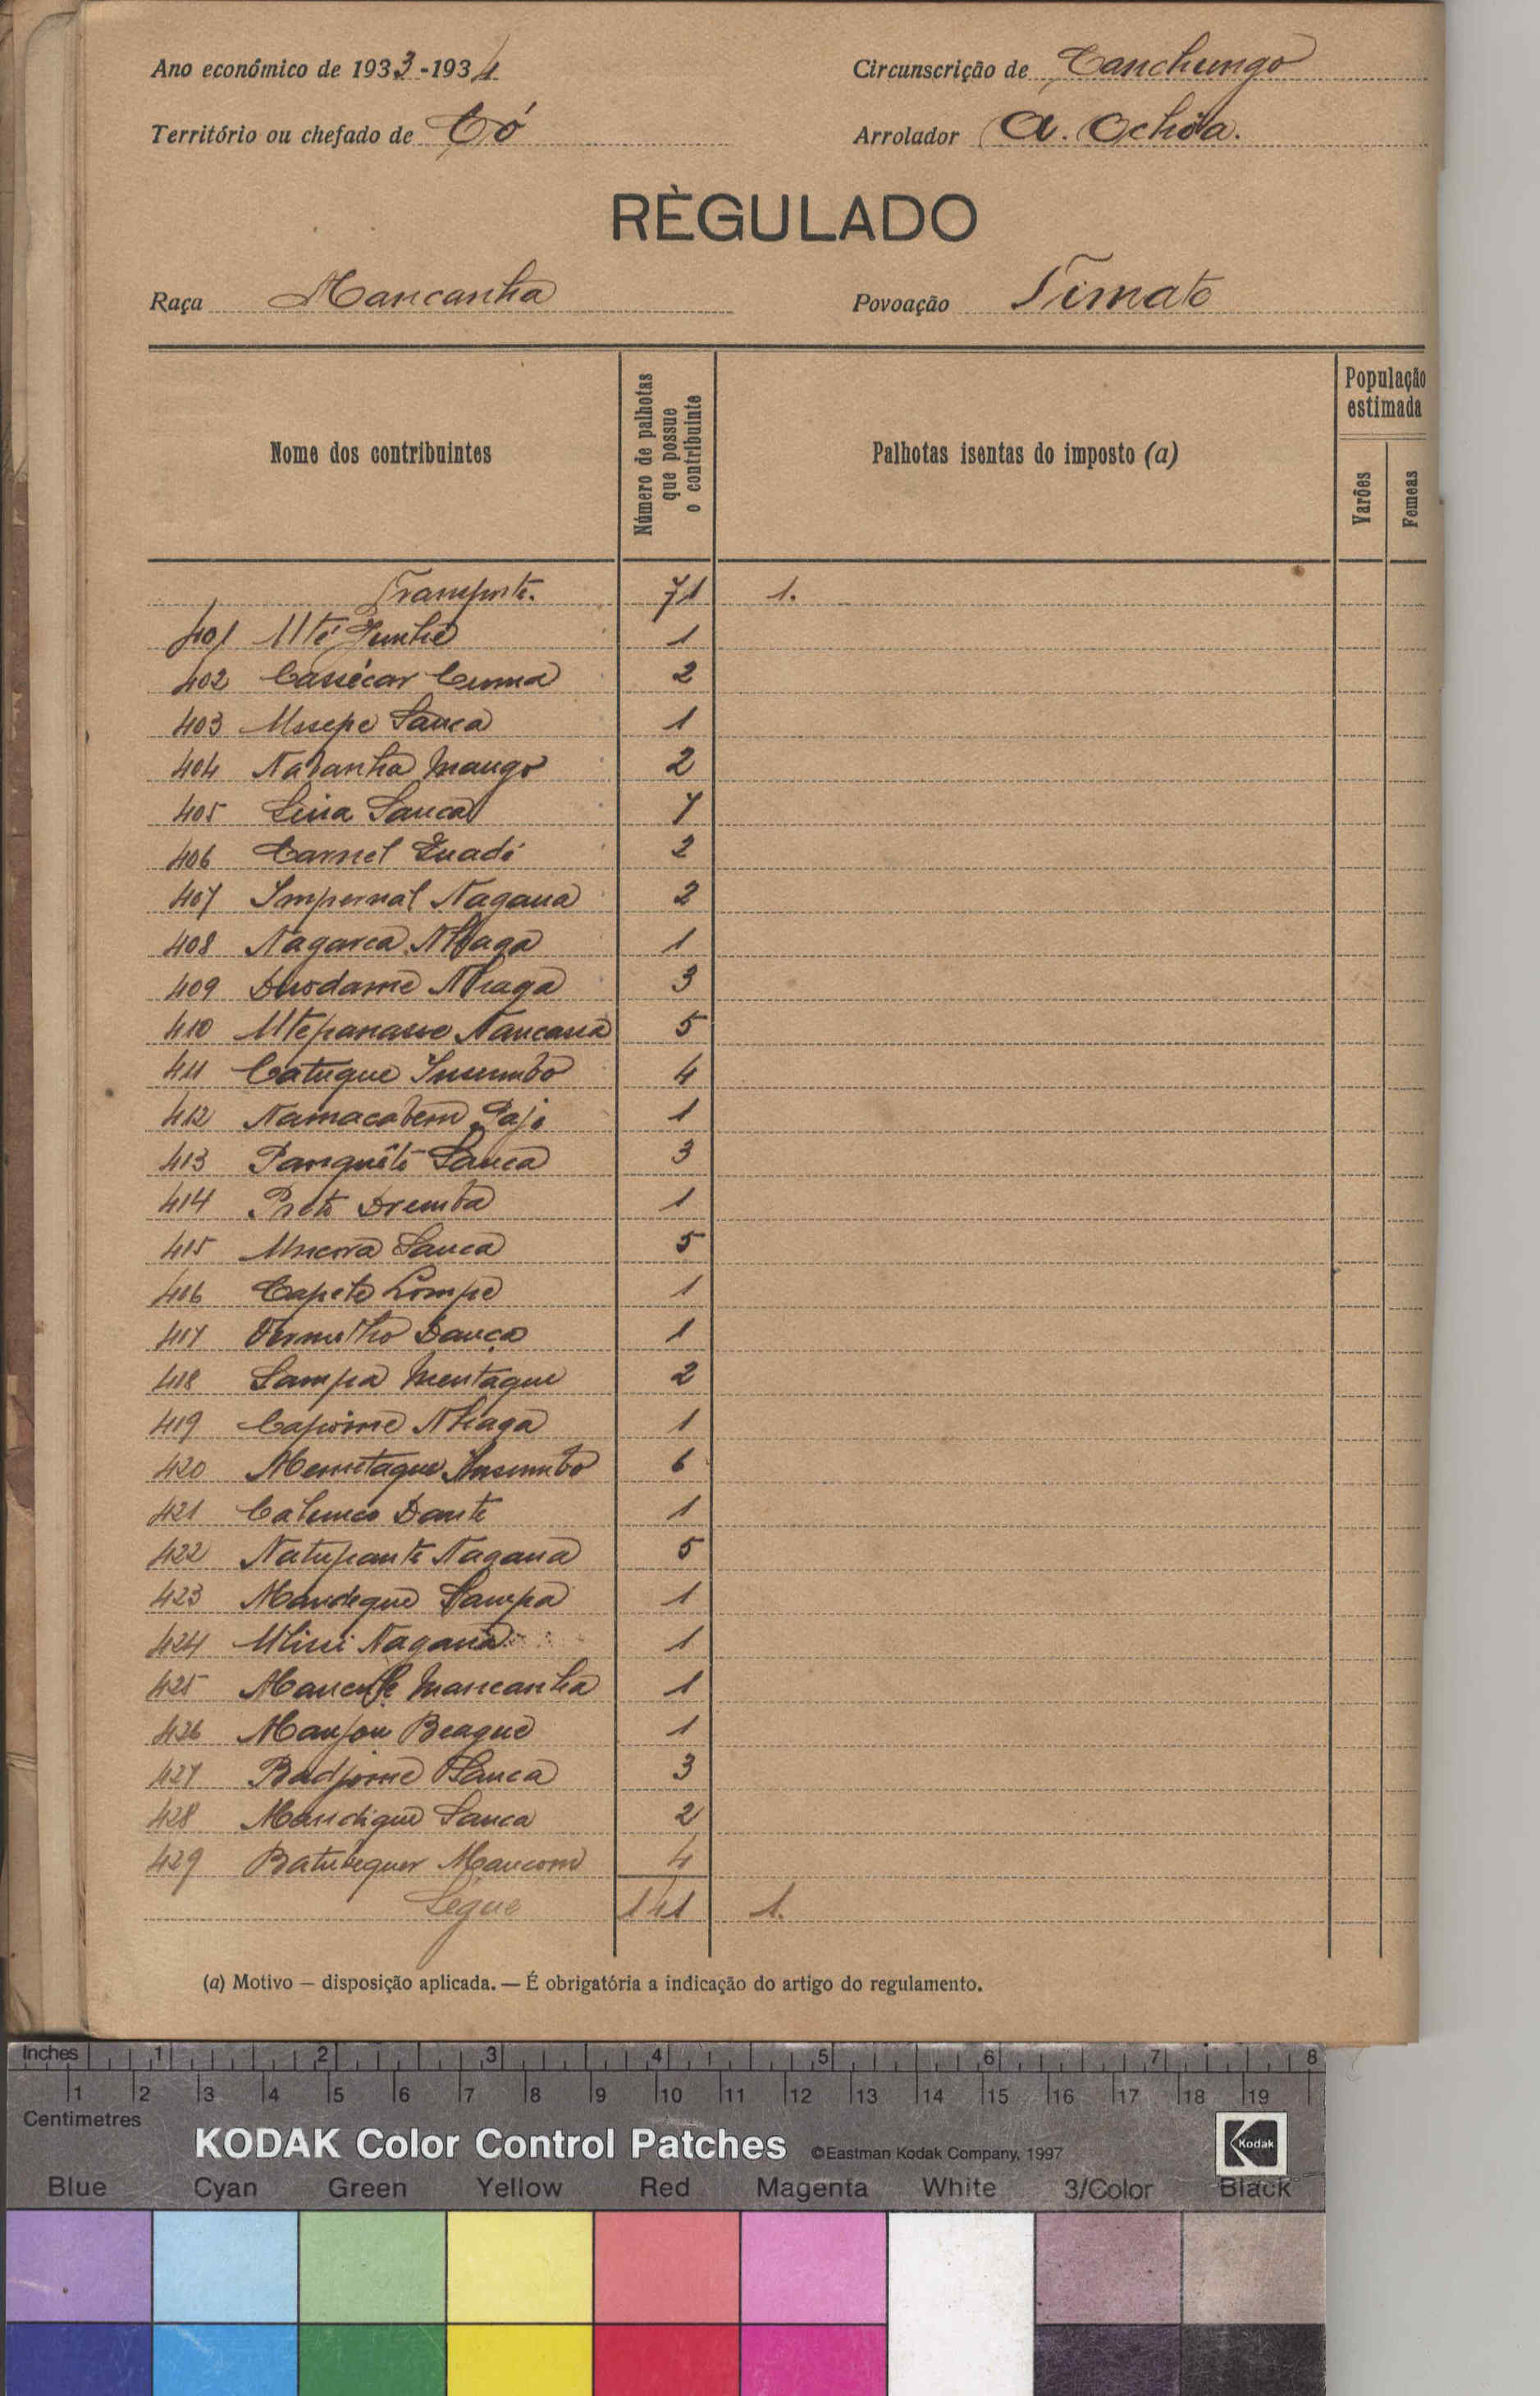 Ano económico de 1933-1934
Circunscrição de Canchungo
Território ou chefado de Có
Arrolador A. Ochôa.
RÈGULADO
Raça Mancanha
Povoação Timato
Nome dos contribuintes
Número de palhotas que possue o contribuinte
Palhotas isentas do imposto (a)
População estimada
Varões
Femeas
Transporte. 71 1.
401 1
402 Cassécar Cuma 2
403 Mssepe Sanca 1
404 Nabanha Mango 2
405 Sanca 7
406 Carnel 2
407 Impernal Nagana 2
408 Nagarca Nhaga 1
409 Nhaga 3
410 5
411 Catuque Insumbo 4
412 Paji 1
413 Panquêtê Sanca 3
414 Preto 1
415 Sanca 5
416 Capete Lompe 1
417 Vermelho Dança 1
418 Sampa Mentague 2
419 Nhaga 1
420 Insumbo 6
421 Dante 1
422 Natupante Nagana 5
423 Mandegue Sampa 1
424 Nagana 1
425 Mancanha 1
426 Beague 1
427 Badjome Sanca 3
428 Mandigue Sanca 2
429 4
Segue 141 1.
(a) Motivo — disposição aplicada. — É obrigatória a indicação do artigo do regulamento.
Inches 1 2 3 4 5 6 7 8
1 2 3 4 5 6 7 8 9 10 11 12 13 14 15 16 17 18 19
Centimetres
KODAK Color Control Patches ©Eastman Kodak Company, 1997 Kodak
Blue Cyan Green Yellow Red Magenta White 3/Color Black